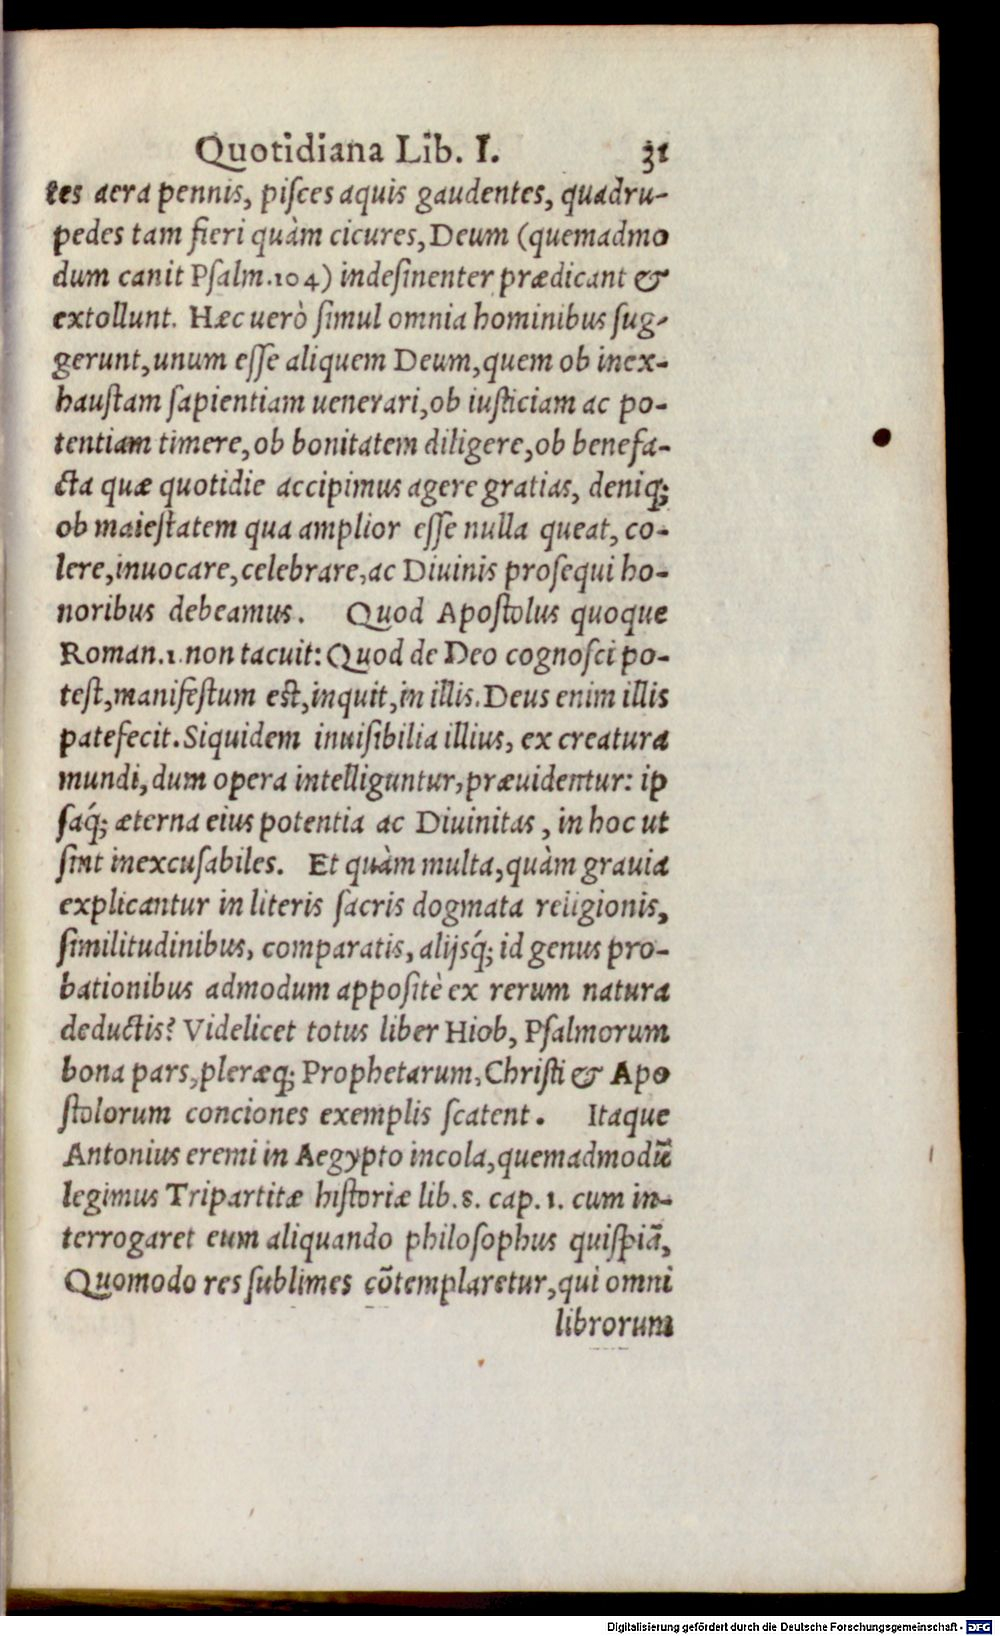 Quotidiana Lib. I. 31
tes aera pennis, pisces aquis gaudentes, quadru-
pedes tam fieri quàm cicures, Deum (quemadmo
dum canit Psalm. 104) indesinenter prædicant &
extollunt. Hæc uerò simul omnia hominibus sug-
gerunt, unum esse aliquem Deum, quem ob inex-
haustam sapientiam uenerari, ob iusticiam ac po-
tentiam timere, ob bonitatem diligere, ob benefa-
cta quæ quotidie accipimus agere gratias, deniq;
ob maiestatem qua amplior esse nulla queat, co-
lere, inuocare, celebrare, ac Diuinis prosequi ho-
noribus debeamus. Quod Apostolus quoque
Roman. 1. non tacuit: Quod de Deo cognosci po-
test, manifestum est, inquit, in illis. Deus enim illis
patefecit. Siquidem inuisibilia illius, ex creatura
mundi, dum opera intelliguntur, præuidentur: ip
saq́; æterna eius potentia ac Diuinitas, in hoc ut
sint inexcusabiles. Et quàm multa, quàm grauia
explicantur in literis sacris dogmata religionis,
similitudinibus, comparatis, alijsq́; id genus pro-
bationibus admodum appositè ex rerum natura
deductis? Videlicet totus liber Hiob, Psalmorum
bona pars, pleræq; Prophetarum, Christi & Apo
stolorum conciones exemplis scatent. Itaque
Antonius eremi in Aegypto incola, quemadmodũ
legimus Tripartitæ historiæ lib. 8. cap. 1. cum in-
terrogaret eum aliquando philosophus quispiã,
Quomodo res sublimes cõtemplaretur, qui omni
librorum
Digitalisierung gefördert durch die Deutsche Forschungsgemeinschaft - DFG